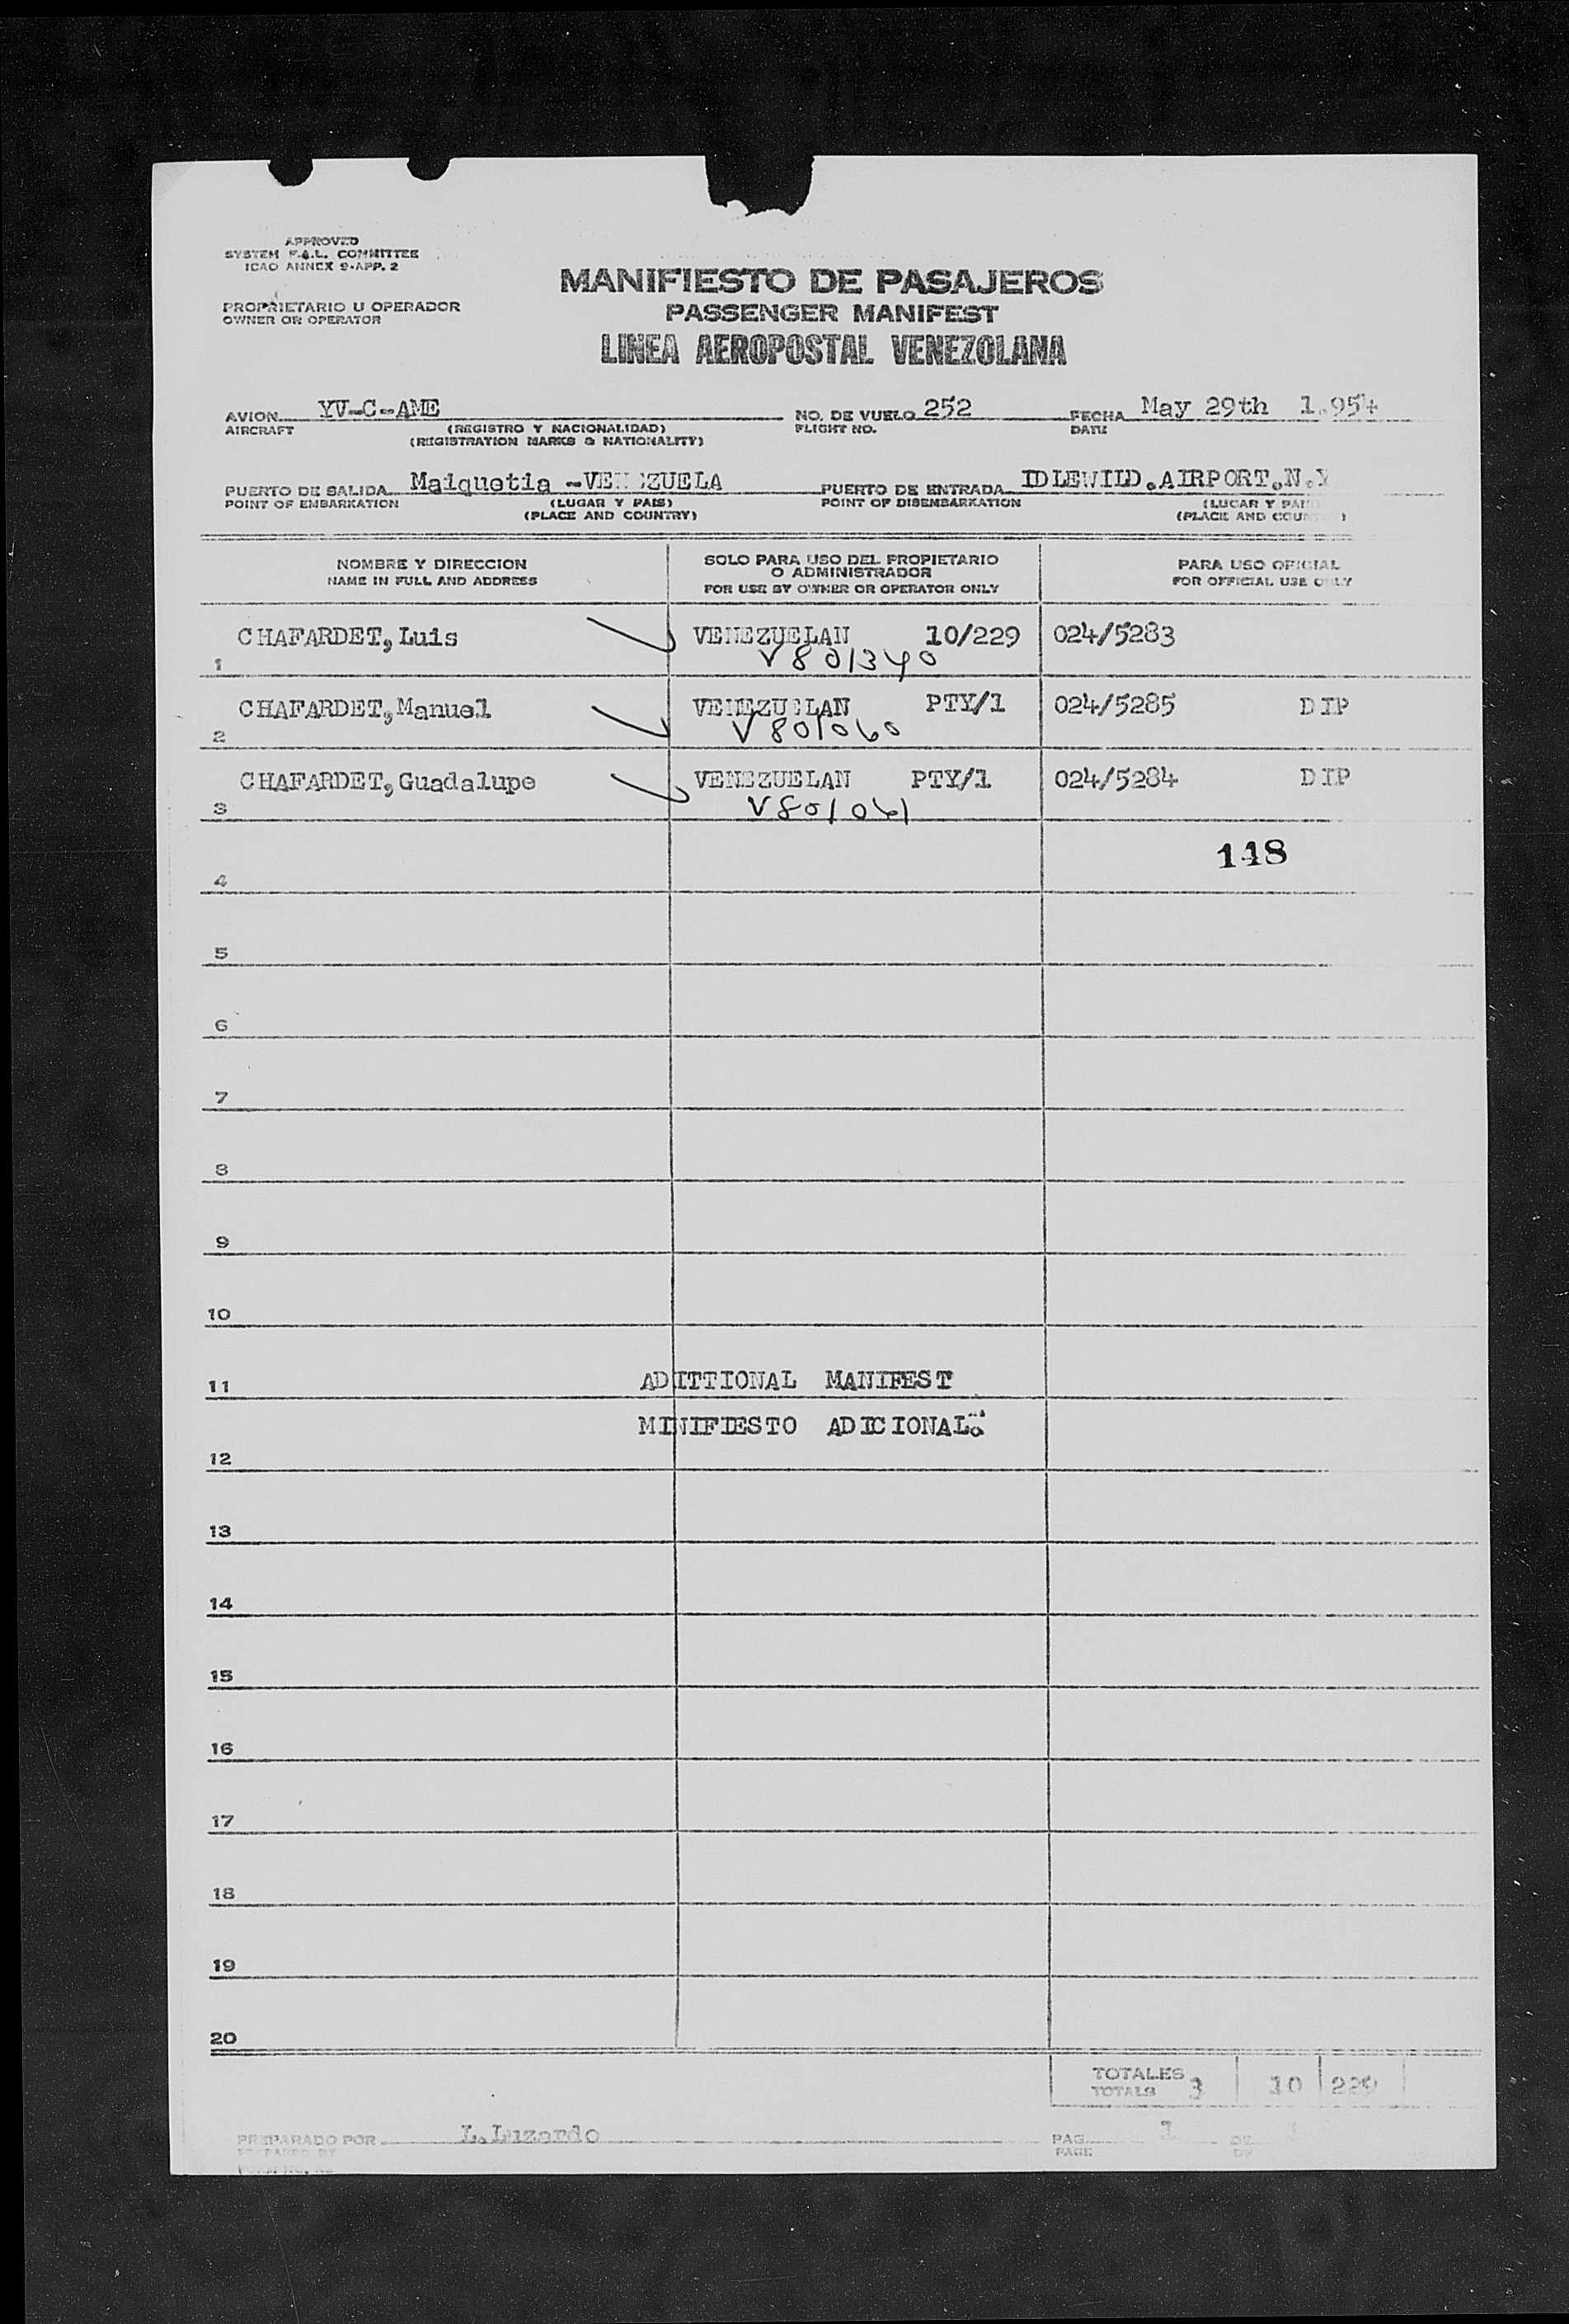 APPROVED
SYSTEM F.A.L. COMMITTEE
ICAO ANNEX 9-APP. 2
MANIFIESTO DE PASAJEROS
PROPRIETARIO U OPERADOR
OWNER OR OPERATOR
PASSENGER MANIFEST
LINEA AEROPOSTAL VENEZOLANA
AVION YV-C-AME NO. DE VUELO 252 FECHA May 29th 1.954
AIRCRAFT (REGISTRO Y NACIONALIDAD) FLIGHT NO. DATE
(REGISTRATION MARKS & NATIONALITY)
PUERTO DE SALIDA Maiquetia -VENEZUELA PUERTO DE ENTRADA IDLEWILD.AIRPORT.N.Y
POINT OF EMBARKATION (LUGAR Y PAIS) POINT OF DISEMBARKATION (LUGAR Y PAIS
(PLACE AND COUNTRY) (PLACE AND COUNTRY)
NOMBRE Y DIRECCION SOLO PARA USO DEL PROPIETARIO PARA USO OFICIAL
O ADMINISTRADOR
NAME IN FULL AND ADDRESS FOR USE BY OWNER OR OPERATOR ONLY FOR OFFICIAL USE ONLY
CHAFARDET,Luis VENEZUELAN 10/229 024/5283
1 V801340
CHAFARDET,Manuel VENEZUELAN PTY/1 024/5285 DIP
2 V801060
CHAFARDET,Guadalupe VENEZUELAN PTY/1 024/5284 DIP
3 V801061
148
4
5
6
7
8
9
10
11 ADITTIONAL MANIFEST
MINIFIESTO ADICIONAL
12
13
14
15
16
17
18
19
20
TOTALES 3 10 229
TOTALS
PREPARADO POR L.Luzardo PAG. 1 DE
PREPARED BY PAGE OF